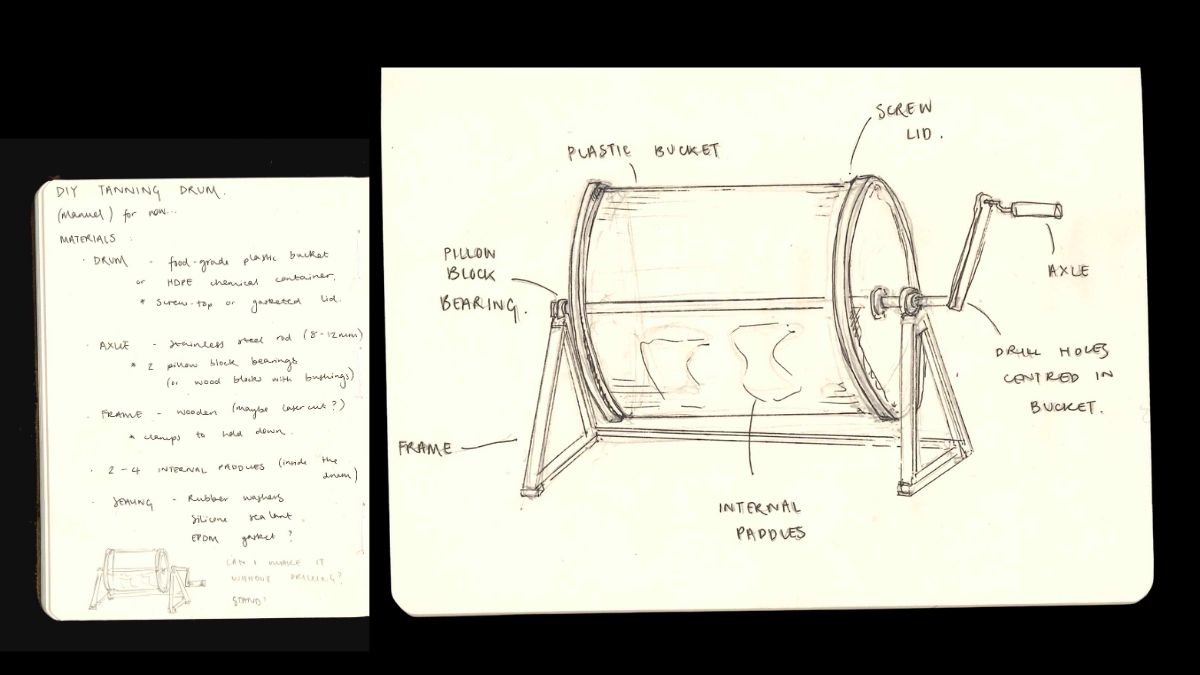 DIY TANNING DRUM.
(Manuel) for now...
MATERIALS :
· DRUM - food-grade plastic bucket
or HDPE chemical container.
* Screw-top or gasketed lid.
· AXLE - stainless steel rod (8-12mm)
* 2 pillow block bearings
(or wood blocks with bushings)
· FRAME - wooden (maybe laser cut?)
* clamps to hold down.
· 2-4 INTERNAL PADDLES (inside the
drum)
· SEALING - Rubber washers
Silicone sealant.
EPDM gasket?
CAN I MAKE IT
WITHOUT DRILLING?
STAND?
SCREW
LID.
PLASTIC BUCKET
PILLOW
BLOCK
BEARING.
AXLE
DRILL HOLES
CENTRED IN
BUCKET.
FRAME
INTERNAL
PADDLES